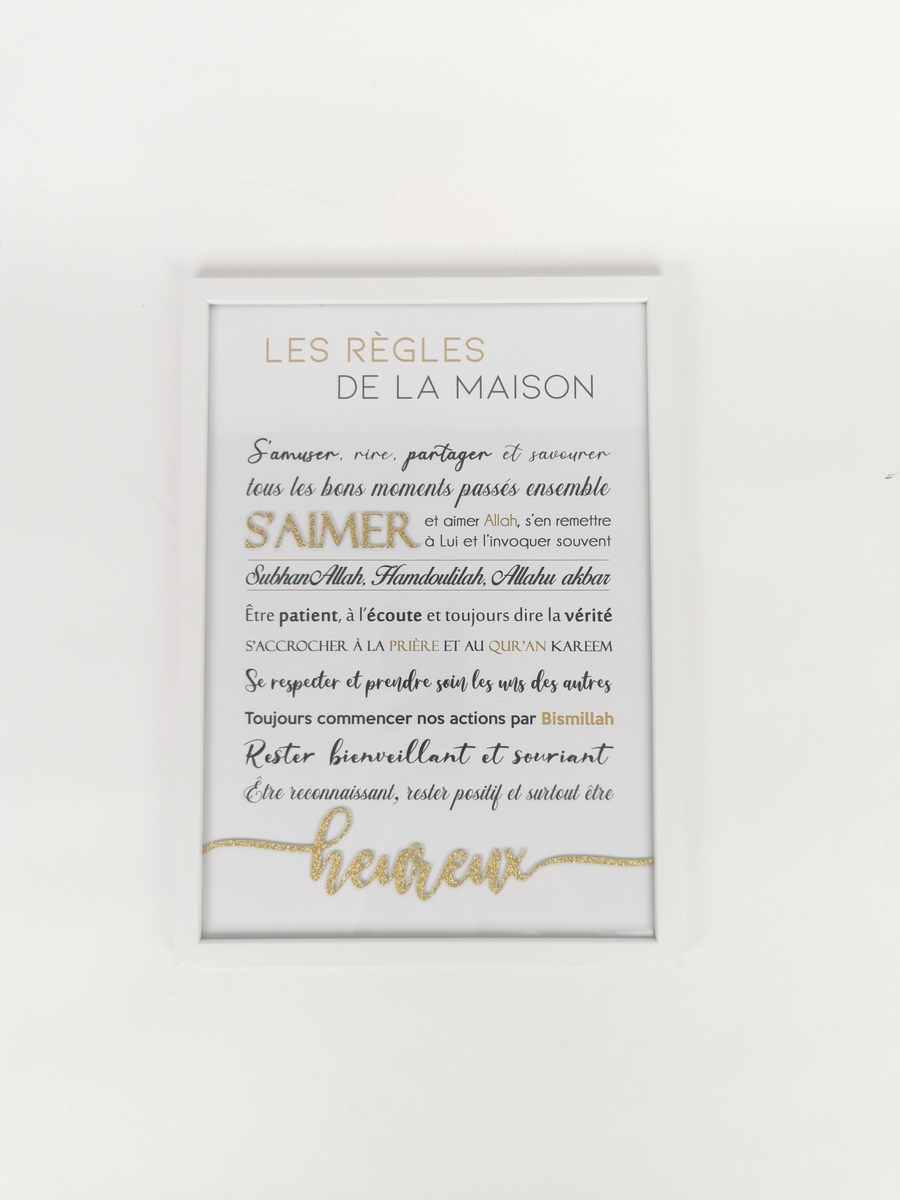 LES RÈGLES
DE LA MAISON
S'amuser, rire, partager et savourer
tous les bons moments passés ensemble
S'AIMER et aimer Allah, s'en remettre
à Lui et l'invoquer souvent
SubhanAllah, Hamdoulilah, Allahu akbar
Être patient, à l'écoute et toujours dire la vérité
S'ACCROCHER À LA PRIÈRE ET AU QUR'AN KAREEM
Se respecter et prendre soin les uns des autres
Toujours commencer nos actions par Bismillah
Rester bienveillant et souriant
Être reconnaissant, rester positif et surtout être
heureux